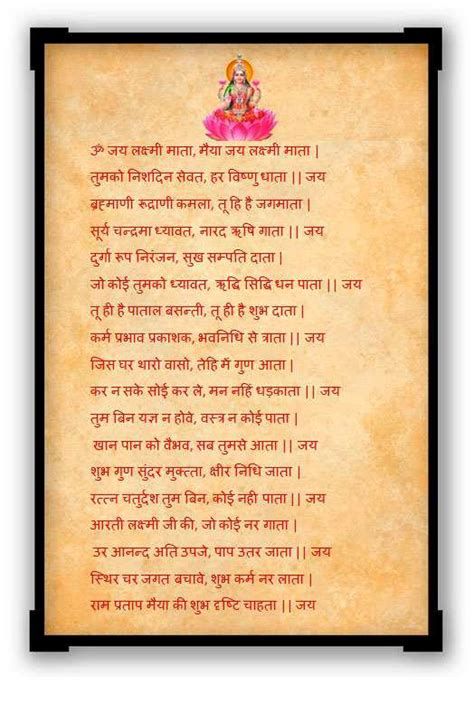 ॐ जय लक्ष्मी माता, मैया जय लक्ष्मी माता |
तुमको निशदिन सेवत, हर विष्णु धाता || जय
ब्रह्माणी रूद्राणी कमला, तू हि है जगमाता |
सूर्य चन्द्रमा ध्यावत, नारद ऋषि गाता || जय
दुर्गा रूप निरंजन, सुख सम्पति दाता |
जो कोई तुमको ध्यावत, ऋद्धि सिद्धि धन पाता || जय
तू ही है पाताल बसन्ती, तू ही है शुभ दाता |
कर्म प्रभाव प्रकाशक, भवनिधि से त्राता || जय
जिस घर थारो वासो, तेहि में गुण आता |
कर न सके सोई कर ले, मन नहिं धड़काता || जय
तुम बिन यज्ञ न होवे, वस्त्र न कोई पाता |
खान पान को वैभव, सब तुमसे आता || जय
शुभ गुण सुंदर मुक्त्ता, क्षीर निधि जाता |
रत्त्न चतुर्दश तुम बिन, कोई नही पाता || जय
आरती लक्ष्मी जी की, जो कोई नर गाता |
उर आनन्द अति उपजे, पाप उतर जाता || जय
स्थिर चर जगत बचावे, शुभ कर्म नर लाता |
राम प्रताप मैया की शुभ दृष्टि चाहता || जय